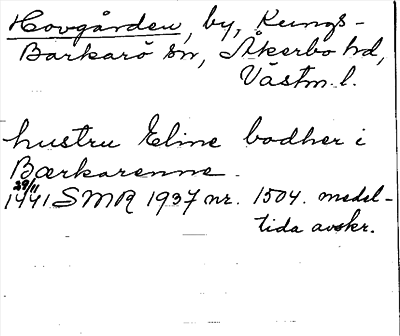 Hovgården, by, Kungs-
Barkarö sn, Åkerbo hd,
Västm. l.
hustru Eline bodher i
Bærkarenne.
29/11
1441 SMR 1937 nr. 1504. medel-
tida avskr.